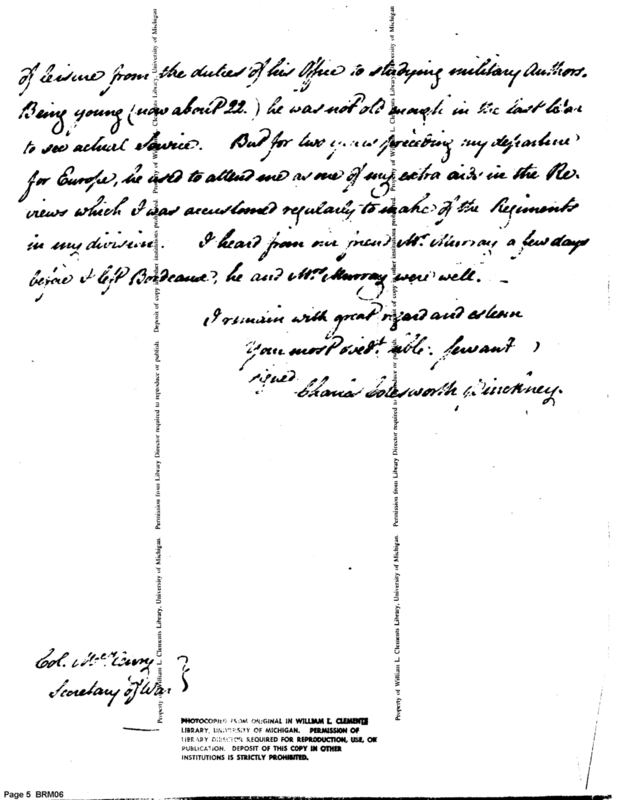 of leisure from the duties of his Office to studying military Authors.
Being young (now about 22.) he was not old enough in the last War
to see actual Service. But for two years preceding my departure
for Europe, he used to attend me as one of my extra aids in the Re-
views which I was accustomed regularly to make of the Regiments
in my division. I heard from our friend Mr. Murray a few days
before I left Bordeaux, he and Mrs. Murray were well. —
I remain with great regard and esteem
Your most obedt. hble. Servant
signed
Charles Cotesworth Pinckney.
Col. McHenry
Secretary of War
Property of William L. Clements Library, University of Michigan. Permission from Library Director required to reproduce or publish. Deposit of copy in other institutions prohibited.
Property of William L. Clements Library, University of Michigan. Permission from Library Director required to reproduce or publish. Deposit of copy in other institutions prohibited.
PHOTOCOPIED FROM ORIGINAL IN WILLIAM L. CLEMENTS
LIBRARY, UNIVERSITY OF MICHIGAN. PERMISSION OF
LIBRARY DIRECTOR REQUIRED FOR REPRODUCTION, USE, OR
PUBLICATION. DEPOSIT OF THIS COPY IN OTHER
INSTITUTIONS IS STRICTLY PROHIBITED.
Page 5 BRM06